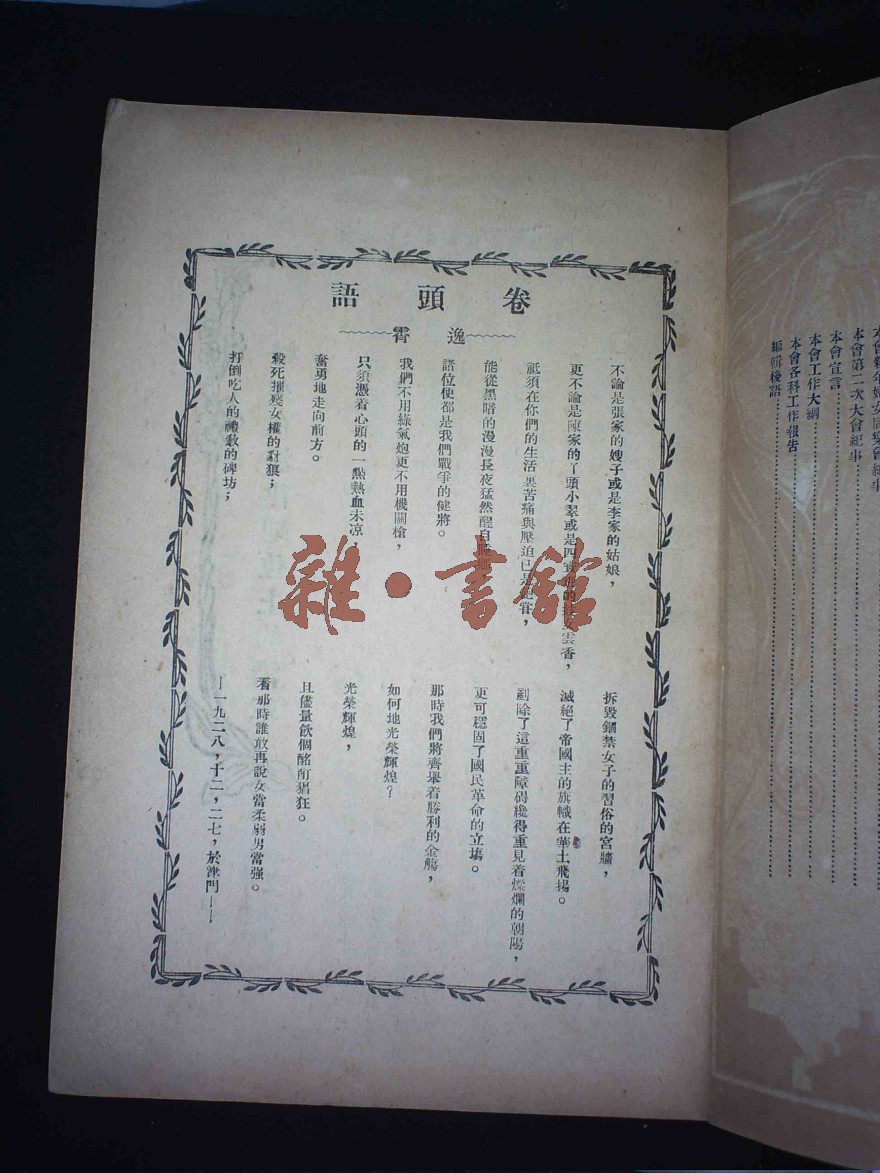 卷頭語
逸霄
不論是張家的嫂子或是李家的姑娘，
更不論是陳家的丫頭小翠或是四雲香，
祗須在你們的生活裏苦痛與壓迫已是，
能從黑暗的漫漫長夜猛然醒自
諸位便都是我們戰爭的健將。
我們不用綠氣炮更不用機關槍，
只須憑着心頭的一點熱血未凉，
奮勇地走向前方。
殺死摧殘女權的豺狼；
打倒吃人的禮敎的碑坊；
拆毀錮禁女子的習俗的宮牆，
滅絕了帝國主的旗幟在華土飛揚。
剷除了這重重障碍纔得重見着燦爛的朝陽，
更可穩固了國民革命的立塲。
那時我們將齊舉着勝利的金觴，
如何地光榮輝煌？
光榮輝煌，
且儘量飲個酩酊猖狂。
看那時誰敢再說女當柔弱男當强。
—一九二八，十二，二七，於津門——
本會新年婦女同樂會紀事
本會第二次大會紀事
本會宣言
本會工作大綱
本會各科工作報告
編輯後語
雜·書館